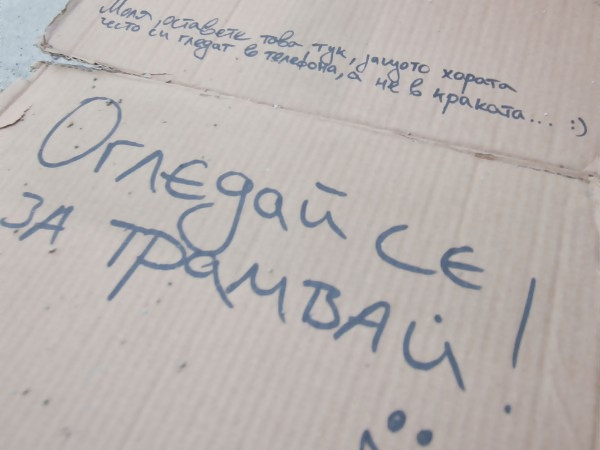 Моля, оставете това тук, защото хората
често си гледат в телефона, а не в краката... :)
ОглЕдай сЕ
ЗА трамВАй!